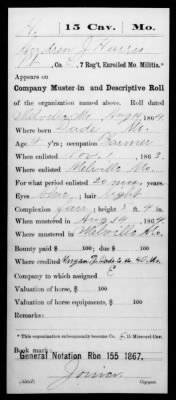 H | 15 Cav. | Mo.
Andrew J. Harris
Co. E, 7 Reg't, Enrolled Mo. Militia.*
Appears on
Company Muster-in and Descriptive Roll
of the organization named above. Roll dated
Melville Mo. Aug 14, 1864.
Where born Dade Co. Mo.
Age y'rs; occupation Farmer
When enlisted Nov. 1, 1863.
Where enlisted Melville Mo.
For what period enlisted 20 mos. years.
Eyes blue; hair light
Complexion fair; height 5 ft. 4 in.
When mustered in Aug 14, 1864.
Where mustered in Melville Mo.
Bounty paid $ 100; due $ 100
Where credited Morgan Tp. Dade Co. Mo.
Company to which assigned E
Valuation of horse, $ 100
Valuation of horse equipments, $ 100
Remarks:
*This organization subsequently became Co. E, 15 Missouri Cav.
General Notation Rbn 155 1867.
Copyist.